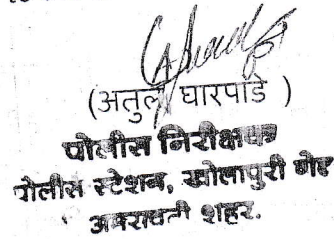 (अतुल घारपांडे )
पोलीस निरीक्षक
पोलीस स्टेशन, खोलापुरी गेट
अमरावती शहर.